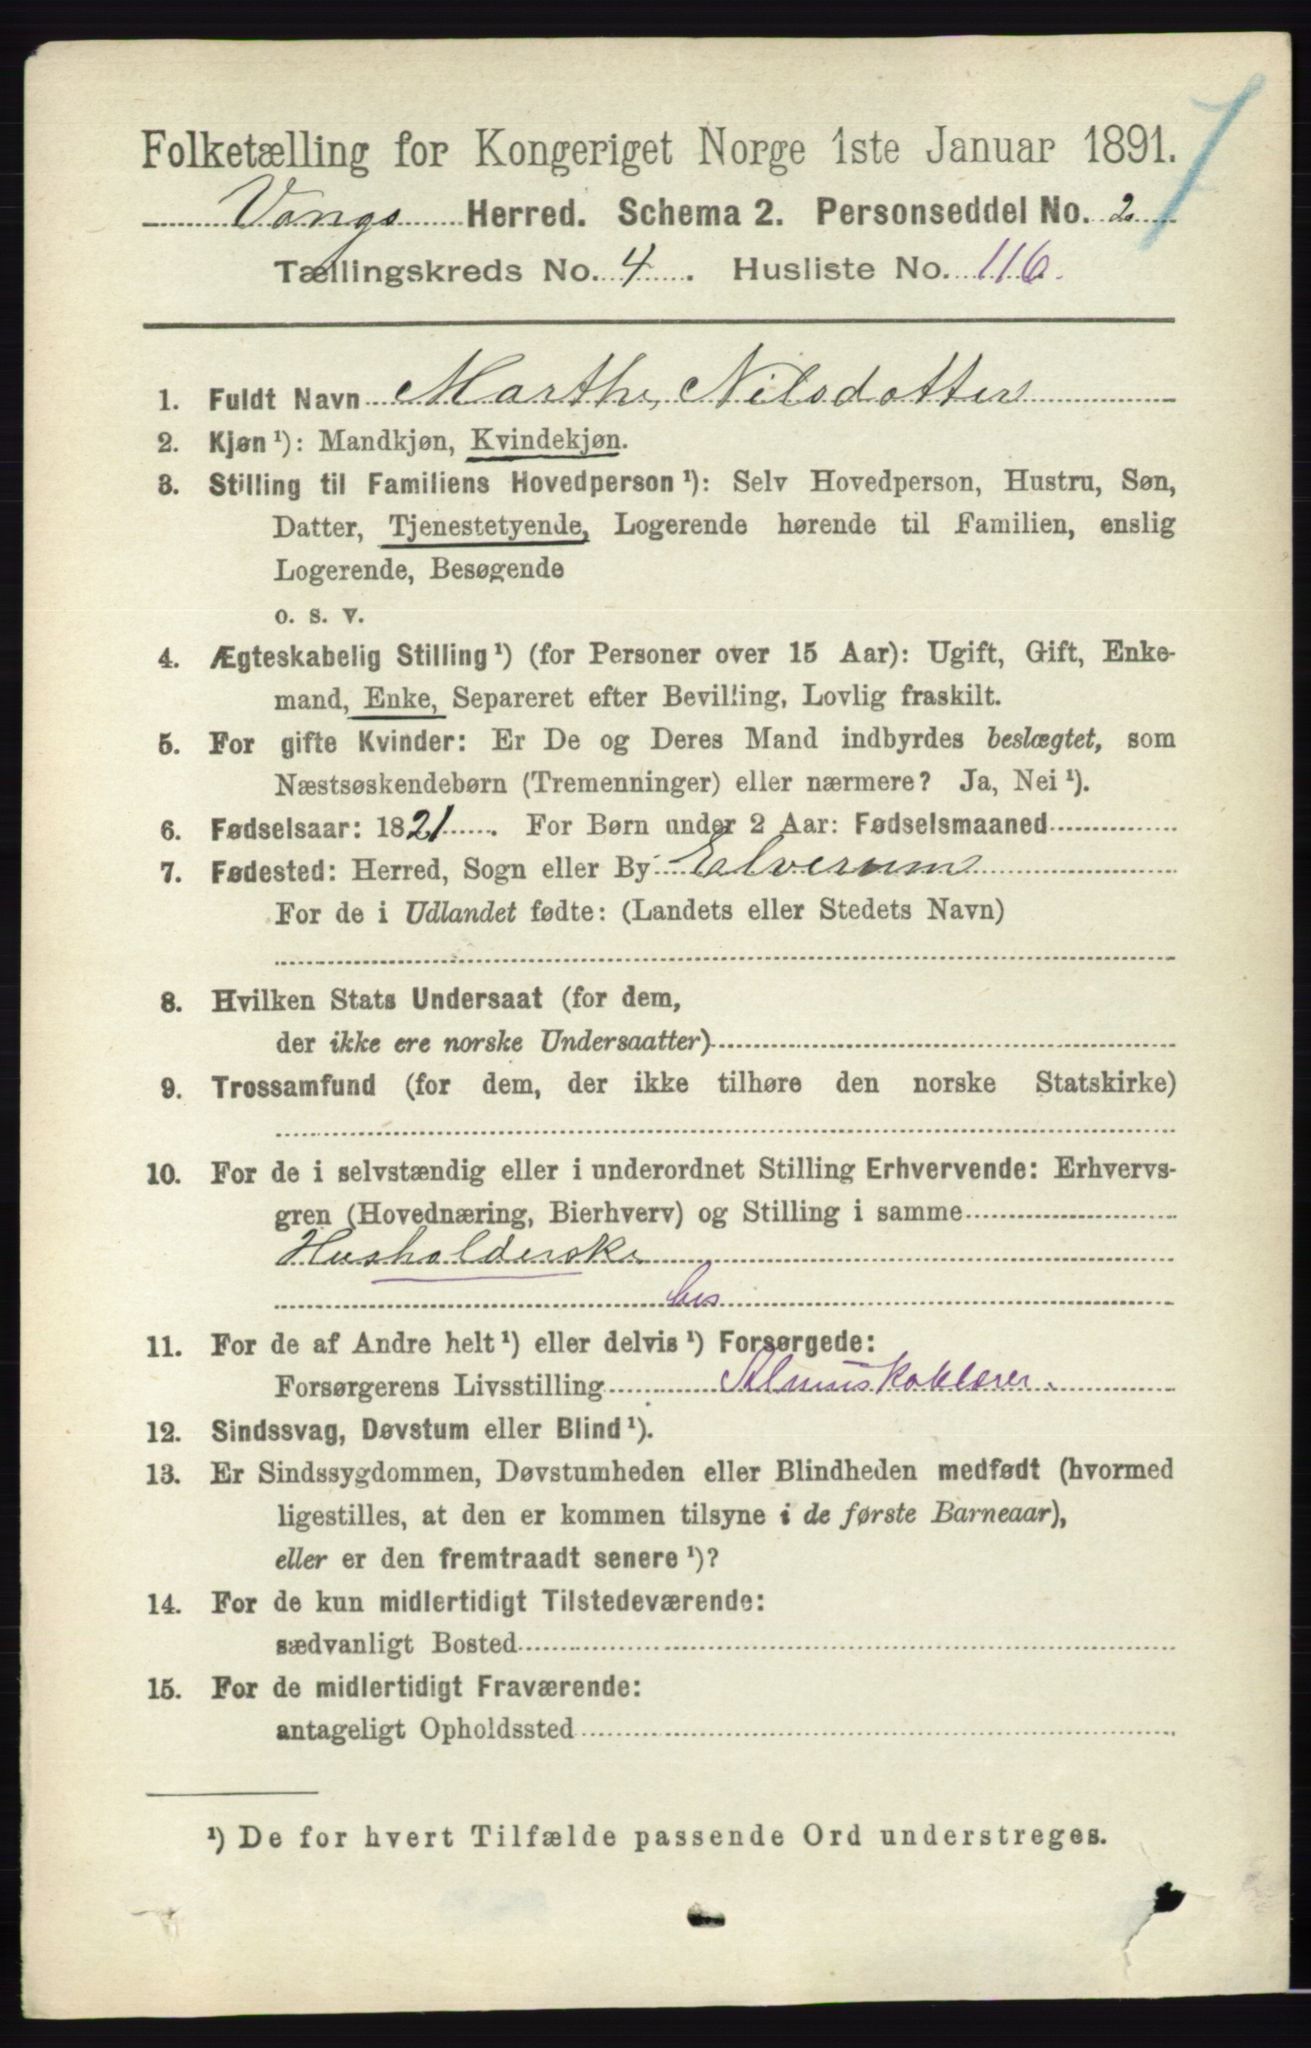 7
Folketælling for Kongeriget Norge 1ste Januar 1891.
Vangs Herred. Schema 2. Personseddel No. 2
Tællingskreds No. 4. Husliste No. 116.
1. Fuldt Navn Marthe Nilsdotter
2. Kjøn ¹): Mandkjøn, Kvindekjøn.
3. Stilling til Familiens Hovedperson ¹): Selv Hovedperson, Hustru, Søn,
Datter, Tjenestetyende, Logerende hørende til Familien, enslig
Logerende, Besøgende
o. s. v.
4. Ægteskabelig Stilling ¹) (for Personer over 15 Aar): Ugift, Gift, Enke-
mand, Enke, Separeret efter Bevilling, Lovlig fraskilt.
5. For gifte Kvinder: Er De og Deres Mand indbyrdes beslægtet, som
Næstsøskendebørn (Tremenninger) eller nærmere? Ja, Nei ¹).
6. Fødselsaar: 1821. For Børn under 2 Aar: Fødselsmaaned
7. Fødested: Herred, Sogn eller By Elverum
For de i Udlandet fødte: (Landets eller Stedets Navn)
8. Hvilken Stats Undersaat (for dem,
der ikke ere norske Undersaatter)
9. Trossamfund (for dem, der ikke tilhøre den norske Statskirke)
10. For de i selvstændig eller i underordnet Stilling Erhvervende: Erhvervs-
gren (Hovednæring, Bierhverv) og Stilling i samme
Husholderske
hos
11. For de af Andre helt ¹) eller delvis ¹) Forsørgede:
Forsørgerens Livsstilling Almueskolelærer.
12. Sindssvag, Døvstum eller Blind ¹).
13. Er Sindssygdommen, Døvstumheden eller Blindheden medfødt (hvormed
ligestilles, at den er kommen tilsyne i de første Barneaar),
eller er den fremtraadt senere ¹)?
14. For de kun midlertidigt Tilstedeværende:
sædvanligt Bosted
15. For de midlertidigt Fraværende:
antageligt Opholdssted
¹) De for hvert Tilfælde passende Ord understreges.